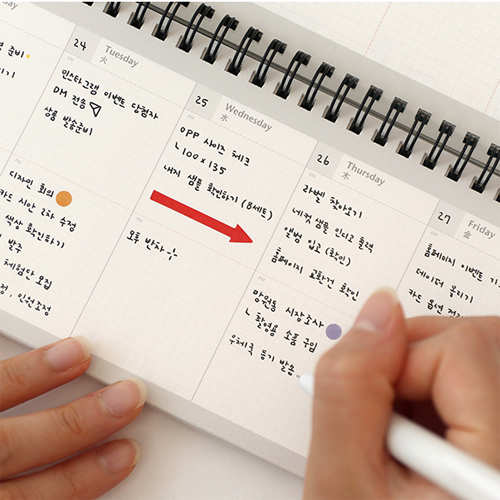 준비
기
디자인 회의
카드 시안 2차 수정
색상 확인하기
발주
체험단 모집
인원조정
24 Tuesday
火
인스타그램 이벤트 당첨자
DM 전송
상품 발송준비
오후 반차
25 Wednesday
水
OPP 사이즈 체크
ㄴ100 x 135
내지 샘플 확인하기 (B세트)
26 Thursday
木
라벨 찾아오기
네컷 샘플 인디고 출력
앨범 입고 (확인)
홈페이지 교환건 확인
망원동 시장조사
ㄴ 촬영용 소품 구입
우체국 등기 발송
27 Friday
金
홈페이지 이벤트
데이터 옮기기
카드 옵션